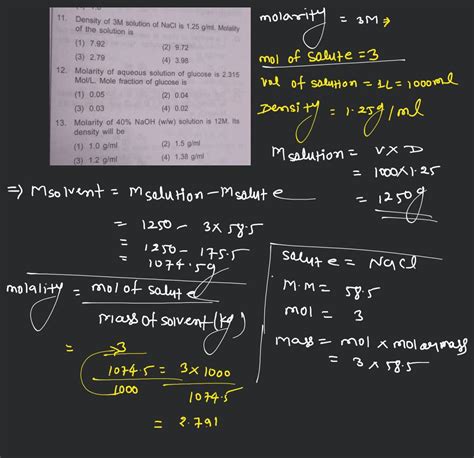 11. Density of 3M solution of NaCl is 1.25 g/ml. Molality
of the solution is
(1) 7.92 (2) 9.72
(3) 2.79 (4) 3.98
12. Molarity of aqueous solution of glucose is 2.315
Mol/L. Mole fraction of glucose is
(1) 0.05 (2) 0.04
(3) 0.03 (4) 0.02
13. Molarity of 40% NaOH (w/w) solution is 12M. Its
density will be
(1) 1.0 g/ml (2) 1.5 g/ml
(3) 1.2 g/ml (4) 1.38 g/ml
molarity = 3M ⇒
mol of salute = 3
Vol of salution = 1L = 1000ml
Density = 1.25g/ml
Msalution = V×D
= 1000×1.25
= 1250g
⇒ Msolvent = Msalution - Msalute
= 1250 - 3×58.5
= 1250 - 175.5
= 1074.5g
molality = mol of salute
mass of solvent (kg)
= 3
1074.5 = 3×1000
1000 1074.5
= 2.791
salute = NaCl
M.M = 58.5
mol = 3
mass = mol × molarmass
= 3×58.5